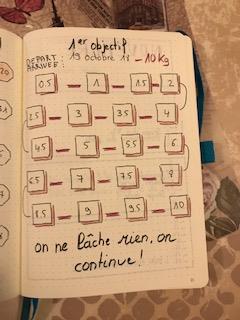 1er objectif
DÉPART: 19 octobre 18 - 10 Kg
ARRIVÉE:
0.5 - 1 - 1.5 - 2
2.5 - 3 - 3.5 - 4
4.5 - 5 - 5.5 - 6
6.5 - 7 - 7.5 - 8
8.5 - 9 - 9.5 - 10
on ne lâche rien, on
continue!